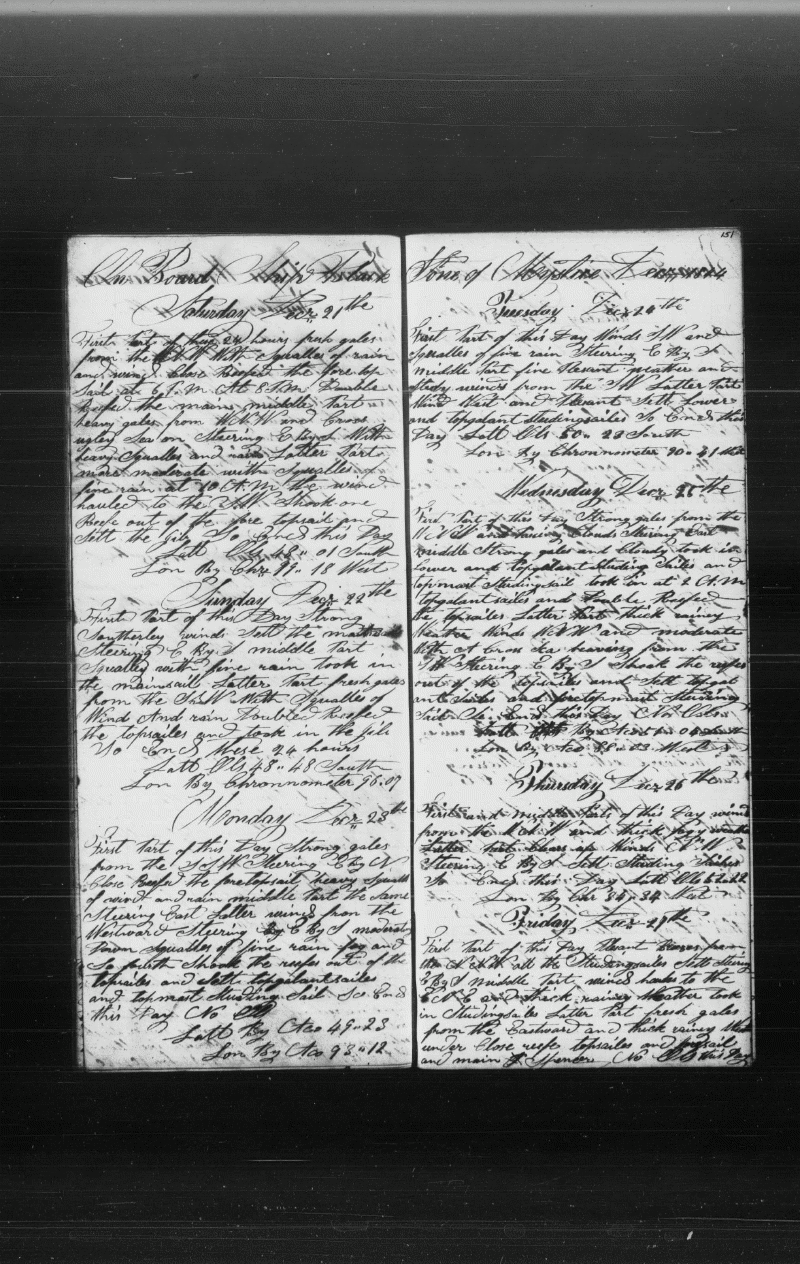 On Board Ship
Saturday Decr 21 the
First Part of these 24 hours fresh gales
from the With Squalles of rain
and wind Close Reefed the fore top
Sail at 6 P.M. At 8 P.M Double
Reefed the main middle Part
heavy gales from W.N.W and Cross
ugley Sea on Steering E By S With
heavy Squalles and rain Latter Part
more moderate with Squalles of
fine rain at 10 A.M the wind
hauled to the S.W Shook one
Reefe out of the fore topsail and
Sett the jib So Ends this Day
Latt Obs 48 " 01 South
Lon By Chr 99 " 18 West
Sunday Decr 22 the
First Part of this Day Strong
Southerley winds Sett the mainsail
Steering E By S middle Part
Squally with fine rain took in
the mainsail Latter Part fresh gales
from the With Squalles of
Wind And rain Doubled Reefed
the topsailes and took in the jib
So Ends these 24 hours
Latt Obs 48 " 48 South
Lon By Chronnometer 96.07
Monday Decr 23 the
First Part of this Day Strong gales
from the Steering E by N
Close Reefed the foretopsail heavy Squalls
of wind and rain middle Part the Same
Steering East Latter winds from the
Westward Steering By E By S moderate
Down Squalles of fine rain fog and
So fourth Shook the reefes out of the
topsailes and Sett topgalantsailes
and topmost Studing Sail So Ends
this Day No Obs
Latt By Aco 49 " 23
Lon By Aco 93 " 12
151
Tuesday Decr 24 the
First Part of this Day Winds SW and
Squalles of fine rain Steering E By S
middle Part fine Pleasant weather and
Stedy winds from the SW Latter Part
Wind West and Plesant Sett Lower
and topgalant Studingsailes So Ends this
Day Latt Obs 50 " 23 South
Lon By Chronnometer 90 " 41 West
Wednesday Decr 25 the
First Part of this Day Strong gales from the
W.N.W and Clouds Steering East
middle Strong gales and Cloudy took in
Lower and topgalant Studing Sailes and
topmast Studingsail took in at 2 A.M
topgalantsailes and Double Reefed
the topsailes Latter Part thick rainey
Weather Winds W.N.W and moderate
With A Cross Sea heaving from the
SW Steering E By S Shook the reefes
out of the topsailes and Sett topgal
antsailes and foretopmast Studing
Sail So Ends this Day No Obs
Latt By Aco
Lon By Aco 88 West
Thursday Decr 26 the
First and middle Parts of this Day winds
from the W.N.W and thick fogy weather
Latter Part Clears up Winds N W
Steering E By S Sett Studing Sailes
So Ends this Day Latt Obs 52.22
Lon By Chr 84 " 34 West
Friday Decr 27 the
First Part of this Day Plesant Breeses from
the N.N.W all the Studingsailes Sett Steering
E By S middle Part wind hauls to the
E N E and thick rainey Weather took
in Studingsailes Latter Part fresh gales
from the Eastward and thick rainey
under Close reefe topsailes and foresail
and main Spencer No Obs this Day